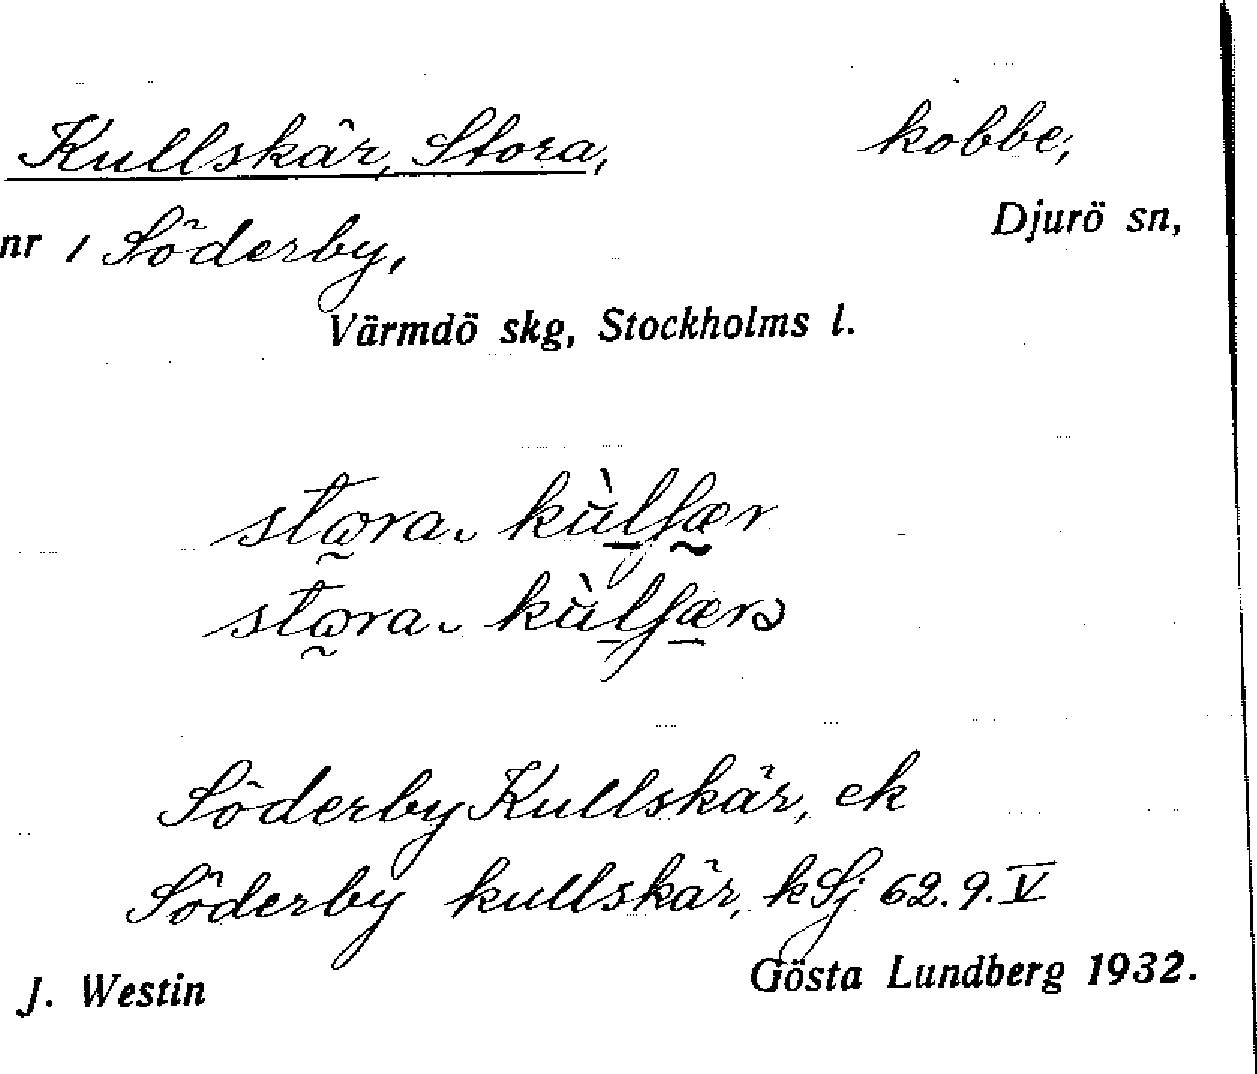 Kullskär, Stora, kobbe,
Djurö sn,
nr 1 Söderby,
Värmdö skg, Stockholms l.
Söderby Kullskär, ek
Söderby kullskär, kSj 62.9.V
J. Westin Gösta Lundberg 1932.